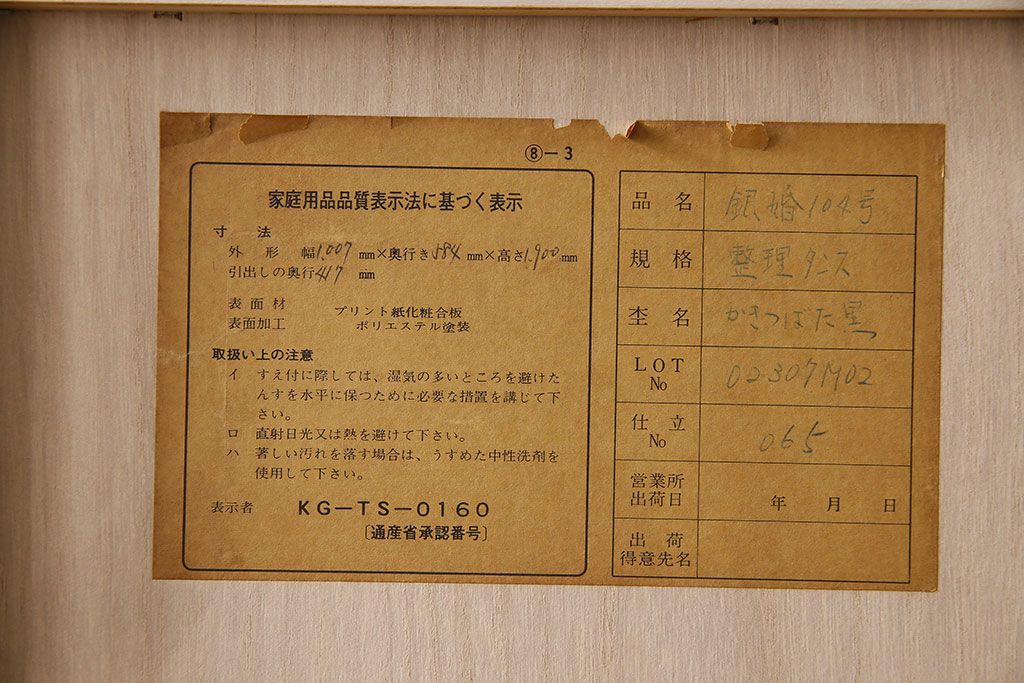 ⑧－3
家庭用品品質表示法に基づく表示
寸法
外形 幅1,007mm×奥行き584mm×高さ1,900mm
引出しの奥行417mm
表面材 プリント紙化粧合板
表面加工 ポリエステル塗装
取扱い上の注意
イ すえ付に際しては、湿気の多いところを避けた
んすを水平に保つために必要な措置を講じて下
さい。
ロ 直射日光又は熱を避けて下さい。
ハ 著しい汚れを落す場合は、うすめた中性洗剤を
使用して下さい。
表示者 KG－TS－0160
〔通産省承認番号〕
品名 銀婚104号
規格 整理タンス
杢名 かきつばた黒
LOT No 02307M02
仕立 No 065
営業所出荷日 年 月 日
出荷得意先名